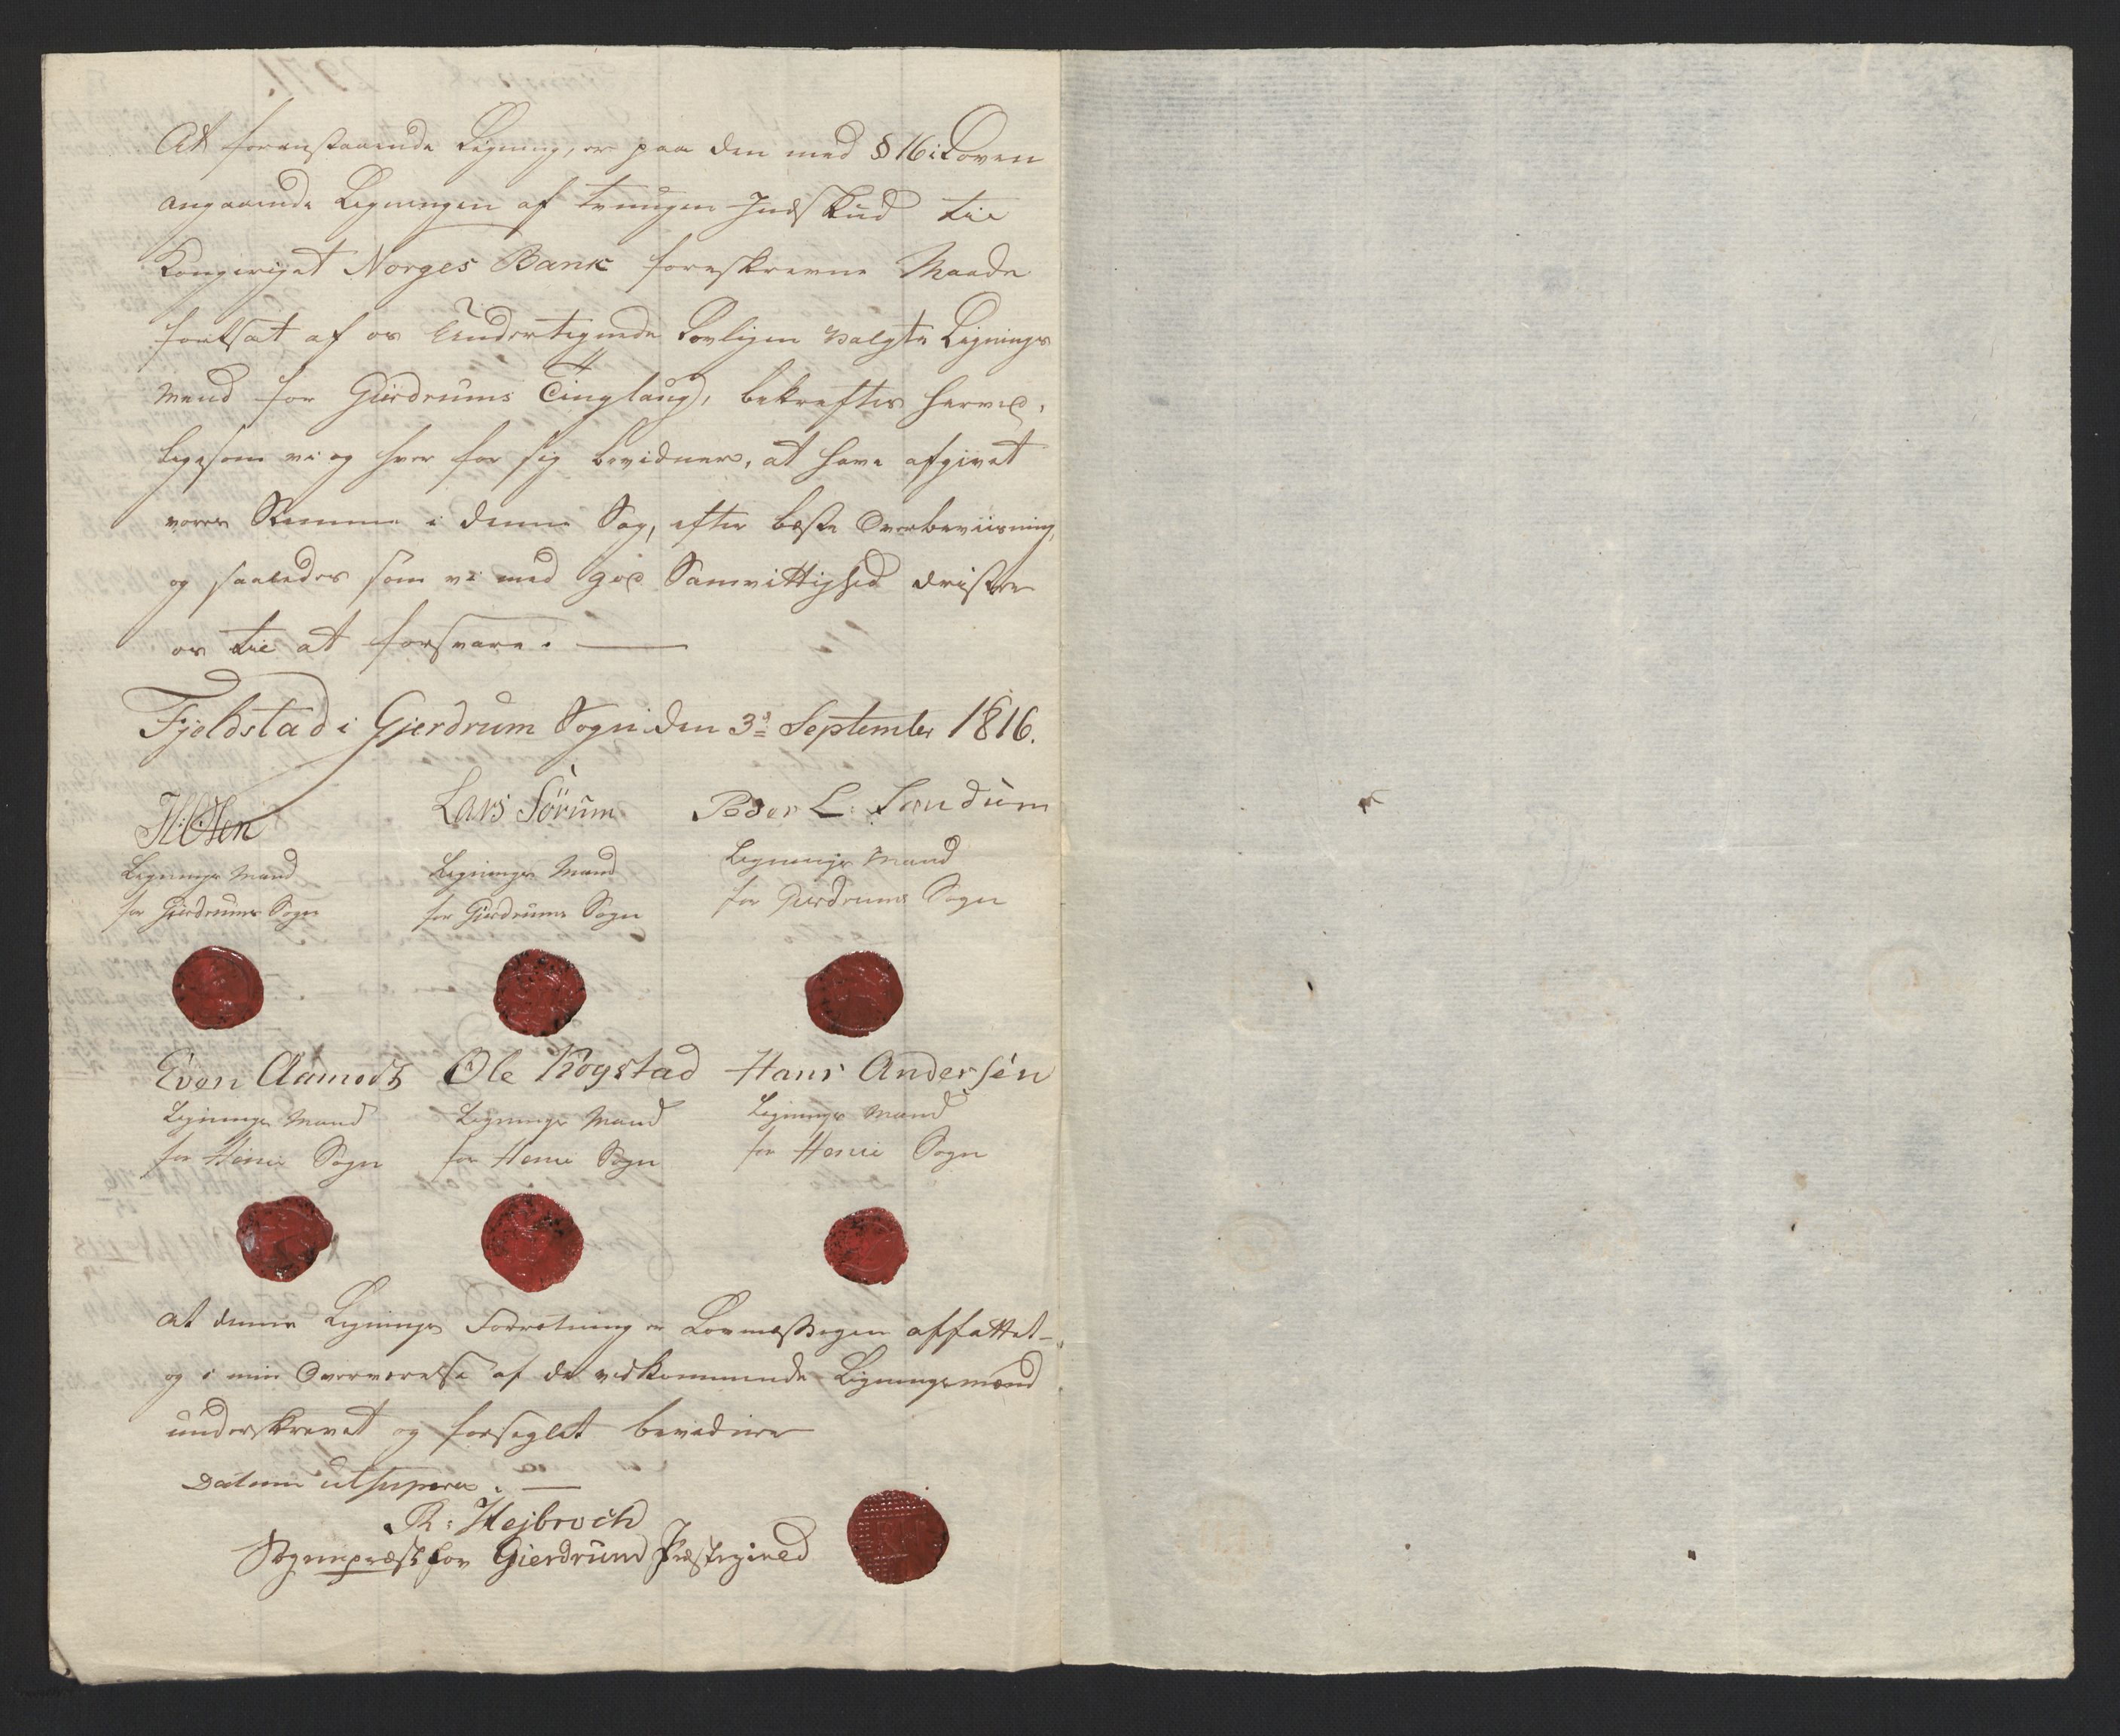 At foranstaaende Ligning, er paa den med § 16 i Loven
angaaende Ligningen af tvungen Indskud til
Kongeriget Norges Bank foreskrevne Maade
fortsat af os Undertegnede Lovligen valgte Lignings
Mænd for Gierdrums Tinglaug, bekræftes herved,
ligesom vi og hver for sig bevidner, at have afgivet
vores Stemme i denne Sag, efter beste Overbeviisning,
og saaledes som vi med god Samvittighed drister
os til at forsvare. —
Fjeldstad i Gjerdrum Sogn den 3d September 1816.
Lars Sörum Peder L:
Lignings Mand Lignings Mand Lignings Mand
for Gierdrums Sogn for Gierdrums Sogn for Gierdrums Sogn
Even Aamodt Ole Kogstad Hans Andersén
Lignings Mand Lignings Mand Lignings Mand
for Henie Sogn for Henie Sogn for Henie Sogn
At denne Lignings Forretning er Lovmæssigen affattet
og i min Overværelse af de vedkommende Ligningsmænd
underskrevet og forseglet bevidner
Datum ut supra. —
R: Hejbroch
Sognepræst for Gierdrum Præstegield